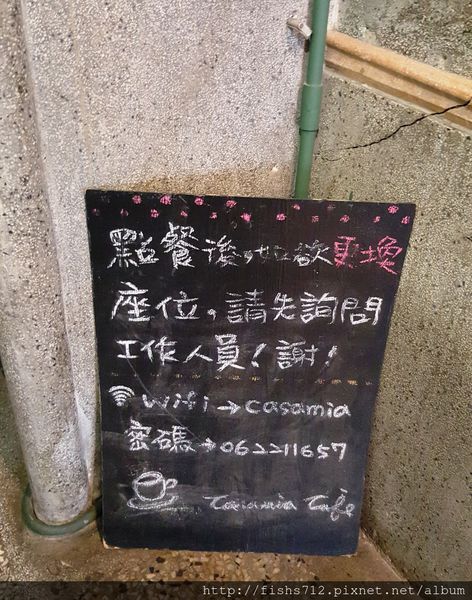 點餐後,如欲更換
座位,請先詢問
工作人員!謝!
wifi→casamia
密碼→062211657
Casamia Cafe
http://fishs712.pixnet.net/album